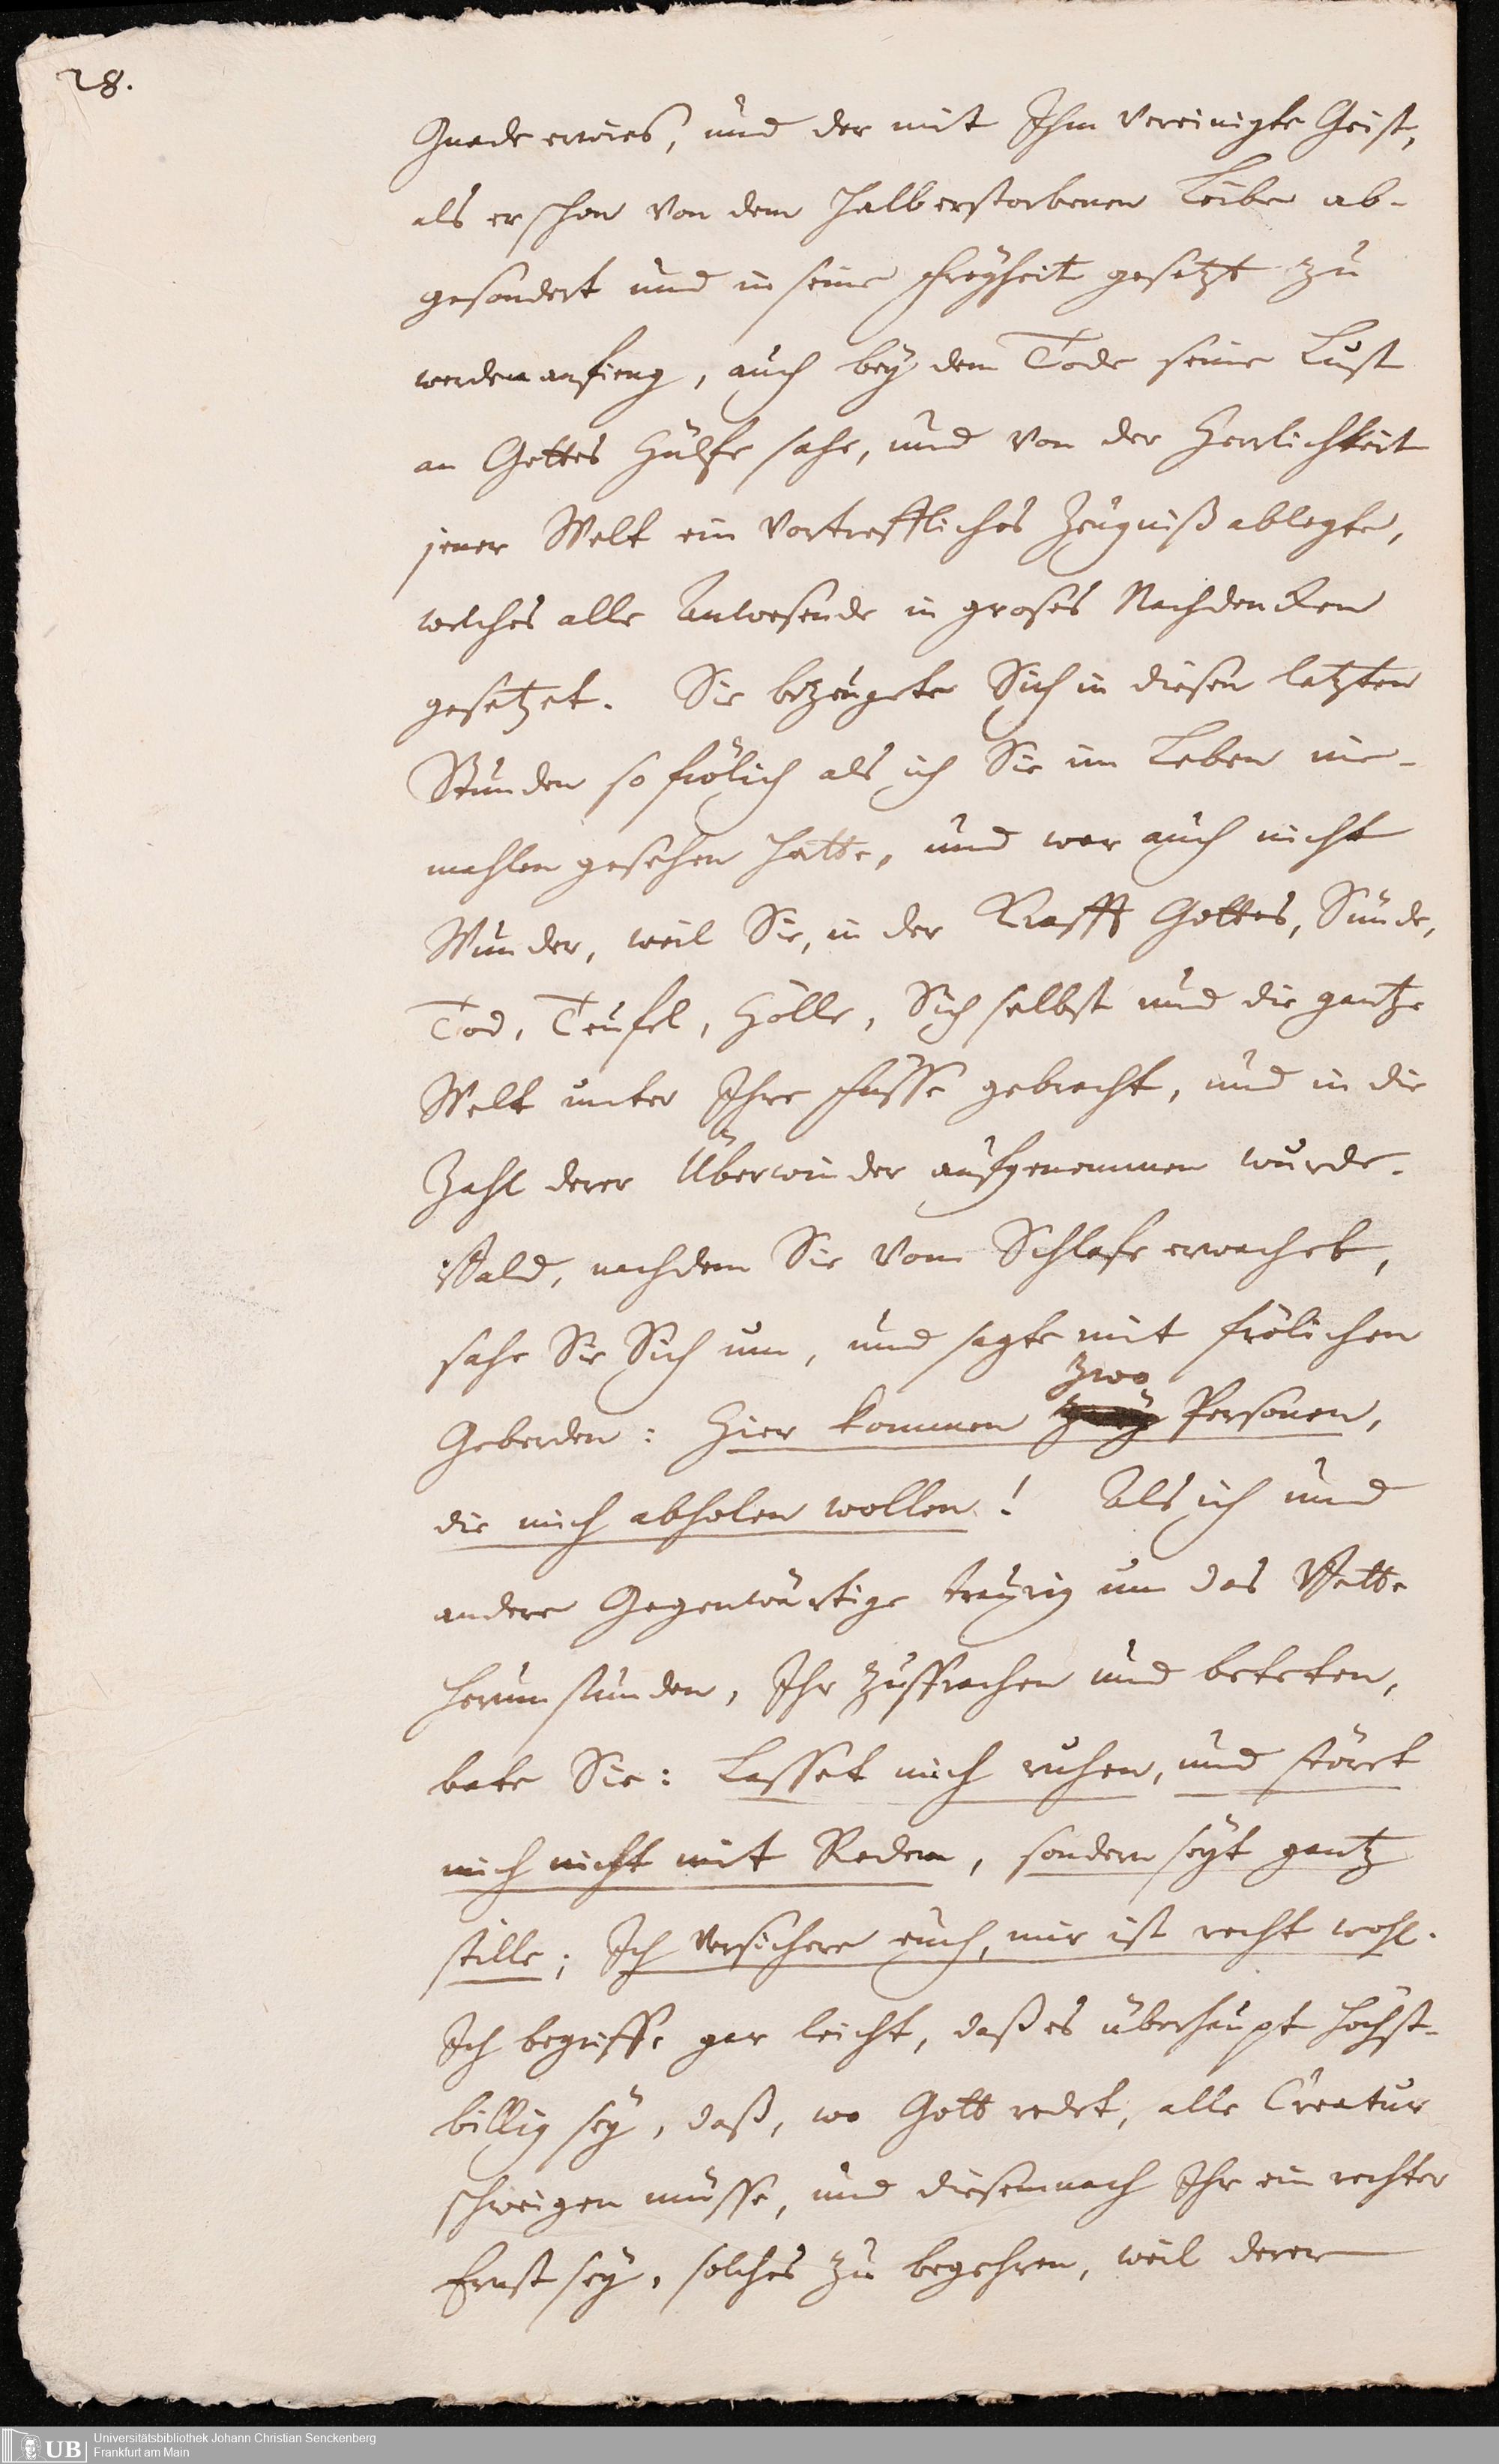 28.
Gnade erwies, und der mit Ihm vereinigte Geist,
als er schon von dem halberstorbenen Leibe ab-
gesondert und in seine Freyheit gesetzt zu
werden anfieng, auch bey dem Tode seine Lust
an Gottes Hülfe sahe, und von der Herrlichkeit
jener Welt ein vortreffliches Zeugniß ablegte,
welches alle Anwesende in groses Nachdencken
gesetzet. Sie bezeugete Sich in diesen letzten
Stunden so frölich als ich Sie im Leben nie-
mahlen gesehen hatte, und war auch nicht
Wunder, weil Sie, in der Krafft Gottes, Sünde,
Tod, Teufel, Hölle, Sich selbst und die gantze
Welt unter Ihre Füsse gebracht, und in die
Zahl derer Überwinder aufgenommen wurde.
Bald, nachdem Sie vom Schlafe erwachet,
sahe Sie Sich um, und sagte mit frölichen
zwo
Geberden: Hier kommen Personen,
die mich abholen wollen! Als ich und
andere Gegenwärtige traurig um das Bette
herum stunden, Ihr zusprachen und beteten,
bate Sie: Lasset mich ruhen, und störet
mich nicht mit Reden, sondern seyt gantz
stille; Ich versichere euch, mir ist recht wohl.
Ich begriffe gar leicht, daß es überhaupt höchst-
billig sey, daß, wo Gott redet, alle Creatur
schweigen müsse, und diesemnach Ihr ein rechter
Ernst sey, solches zu begehren, weil derer
UB
Universitätsbibliothek Johann Christian Senckenberg
Frankfurt am Main